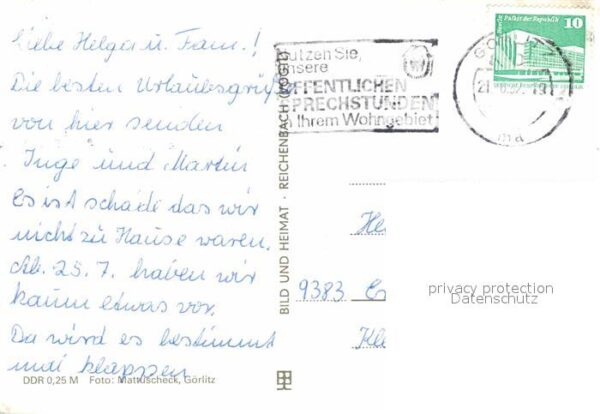 Liebe Helga u. Fam.!
Die besten Urlaubsgrüße
von hier senden
Inge und Martin
Es ist schade das wir
nicht zu Hause waren.
Ab. 25. 7. haben wir
kaum etwas vor.
Da wird es bestimmt
mal klappen
DDR 0,25 M Foto: Mattuscheck, Görlitz
BILD UND HEIMAT · REICHENBACH (VOGTL)
utzen Sie,
nsere
FFENTLICHEN
PRECHSTUNDEN
Ihrem Wohngebiet
GÖRLITZ
Palast der Republik
10
He
9383
Kle
privacy protection
Datenschutz